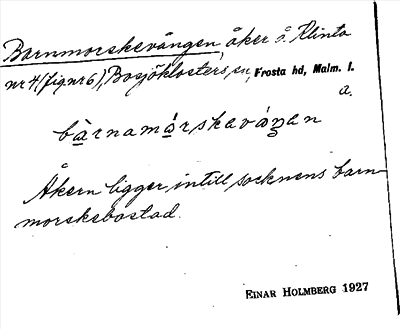 Barnmorskevången, åker å Klinta
nr 4 (fig nr 6), Bosjöklosters sn, Frosta hd, Malm. l.
a.
bàrnamǻrskavá́ŋan
Åkern ligger intill socknens barn-
morskebostad.
EINAR HOLMBERG 1927